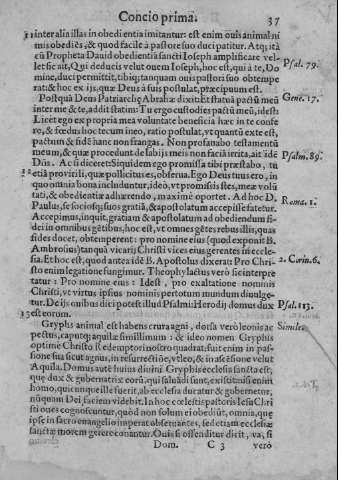 Concio prima. 37
11 inter alia illas in obedientia imitantur: est enim ouis animal ni
mis obediés, & quod facilè à pastore suo duci patitur. Atq; ità
cũ Propheta Dauid obedientiã sancti Ioseph amplificare vel-
let sic ait, Qui deducis velut ouem Ioseph, hoc est, qui à te, Do Psal. 79.
mine, duci permittit, tibiq; tanquam ouis pastori suo obtempe
rat: & hoc ex ijs, quæ Deus à suis postulat, præcipuum est.
Postquã Deus Patriarchę Abrahæ dixit: Et statuã pactũ meũ Gene. 17.
inter me & te, addit statim: Tu ergo custodies pactũ meũ, idest:
Licet ego ex propria mea voluntate beneficia hæc in te confe
ro, & fœdus hoc tecum ineo, ratio postulat, vt quantũ ex te est,
pactum & fidẽ hanc non frangas. Non profanabo testamentũ
meum, & quæ procedunt de labijs meis non faciã irrita, ait idẽ Psalm. 89.
Dñs. Ac si diceret: Siquidem ego promissa tibi præstabo, tu
12 etiã pro virili, quæ pollicitus es, obserua. Ego Deus tuus ero, in
quo omnia bona includuntur, ideò, vt promissis stes, meæ volũ
tati, & obedientiæ adhærendo, maximè oportet. Ad hoc D.
Paulus, se socios; suos gratiã, & apostolatum accepisse fatetur. Roma. 1.
Accepimus, inquit, gratiam & apostolatum ad obediendum fi-
dei in omnibus gẽtibus, hoc est, vt omnes gẽtes rebus illis, quas
fides docet, obtemperent: pro nomine eius (quod exponit B.
Ambrosius) tanquã vicarij Christi vices eius gerentes in eccle-
sia. Et hoc est, quod antea idẽ B. Apostolus dixerat: Pro Chri- 2. Corin. 6.
sto enim legatione fungimur. Theophylactus verò sic interpre
tatur: Pro nomine eius: Idest, pro exaltatione nominis
Christi, vt virtus ipsius nominis per totum mundum diuulge-
tur. De ijs ouibus dici potest illud Psalmi: Herodij domus dux Psal. 113.
13 est eorum.
Gryphs animal est habens crura agni, dorsa verò leonis ac Simile.
pectus, caputq; aquilæ simillimum: & ideo nomen Gryphis
optimè Christo Redemptori nostro quadrat: fuit enim in pas-
sione sua sicut agnus, in resurrectiõe, vt leo, & in ascẽsione velut
Aquila. Domus autẽ huius diuini Gryphis ecclesia sancta est,
que dux & gubernatrix eorũ, qui saluãdi sunt, existit: nisi enim
homo, quicunque ille fuerit, ab ecclesia ducatur & gubernetur,
nũquam Dei faciem videbit. In hoc cœlestis pastoris Iesu Chri
sti oues cognoscuntur, quòd non solum ei obediũt, omnia, que
ipse in sacro euangelio imperat obseruantes, sed etiam ecclesiæ
sanctæ morem gerere conantur. Quis si offenditur dicit, va, si
Dom. C 3 verò